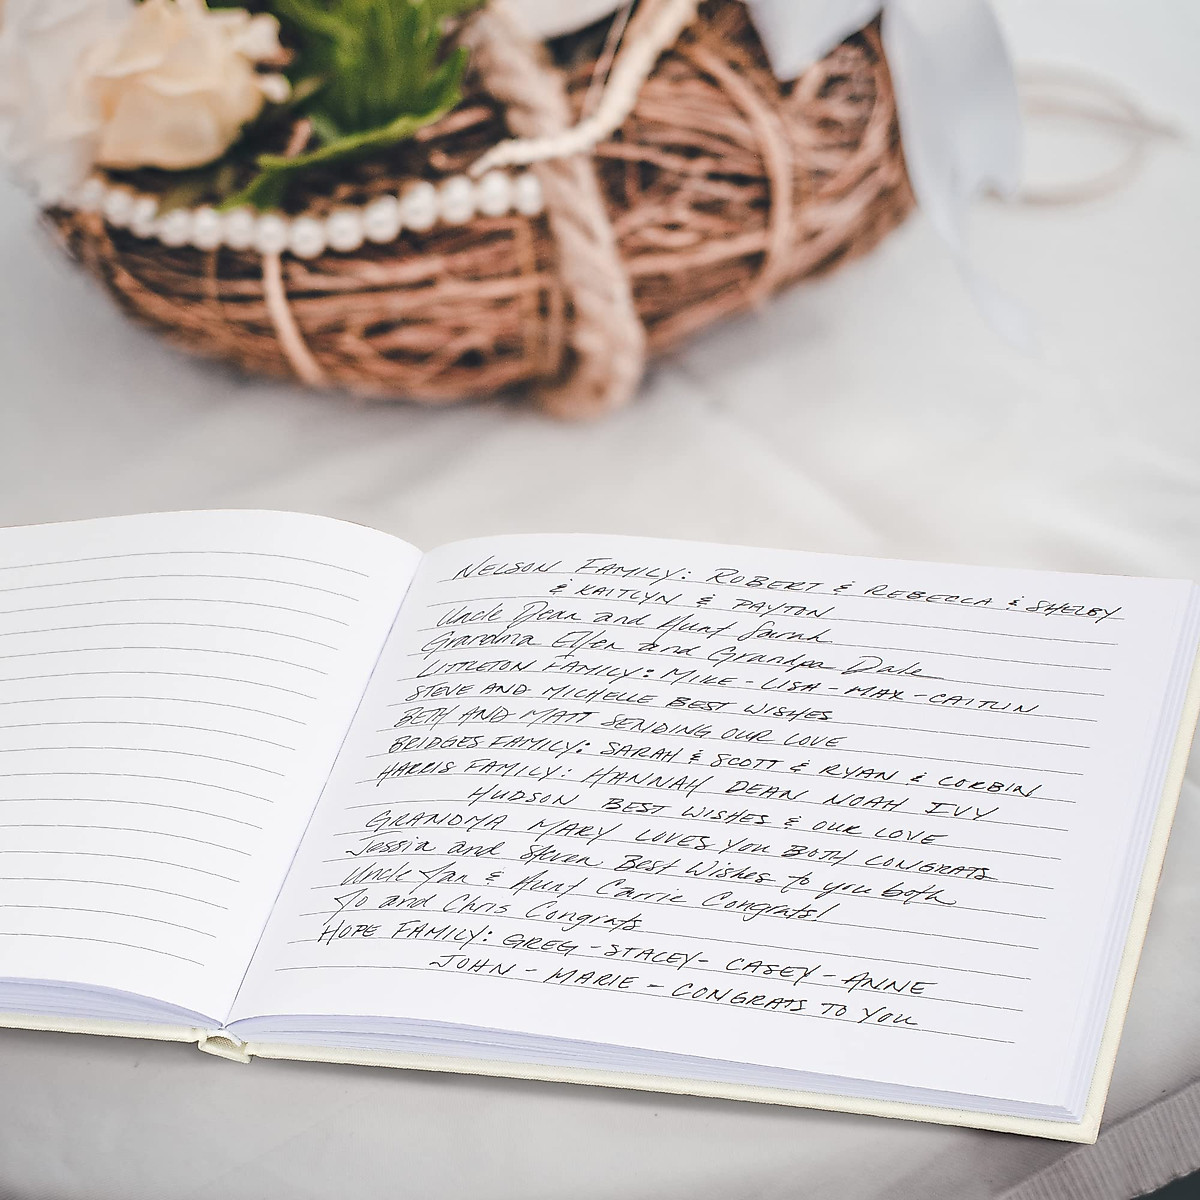 NELSON FAMILY: ROBERT & REBECCA & SHELBY
& KAITLYN & PAYTON
Uncle Dean and Aunt Sarah
Grandma Ellen and Grandpa Dale
LITTLETON FAMILY: MIKE - LISA - MAX - CAITLIN
STEVE AND MICHELLE BEST WISHES
BETH AND MATT SENDING OUR LOVE
BRIDGES FAMILY: SARAH & SCOTT & RYAN & CORBIN
HARRIS FAMILY: HANNAH DEAN NOAH IVY
HUDSON BEST WISHES & OUR LOVE
GRANDMA MARY LOVES YOU BOTH CONGRATS
Jessia and Steven Best Wishes to you both
Uncle Jan & Aunt Carrie Congrats!
Jo and Chris Congrats
HOPE FAMILY: GREG - STACEY - CASEY - ANNE
JOHN - MARIE - CONGRATS TO YOU